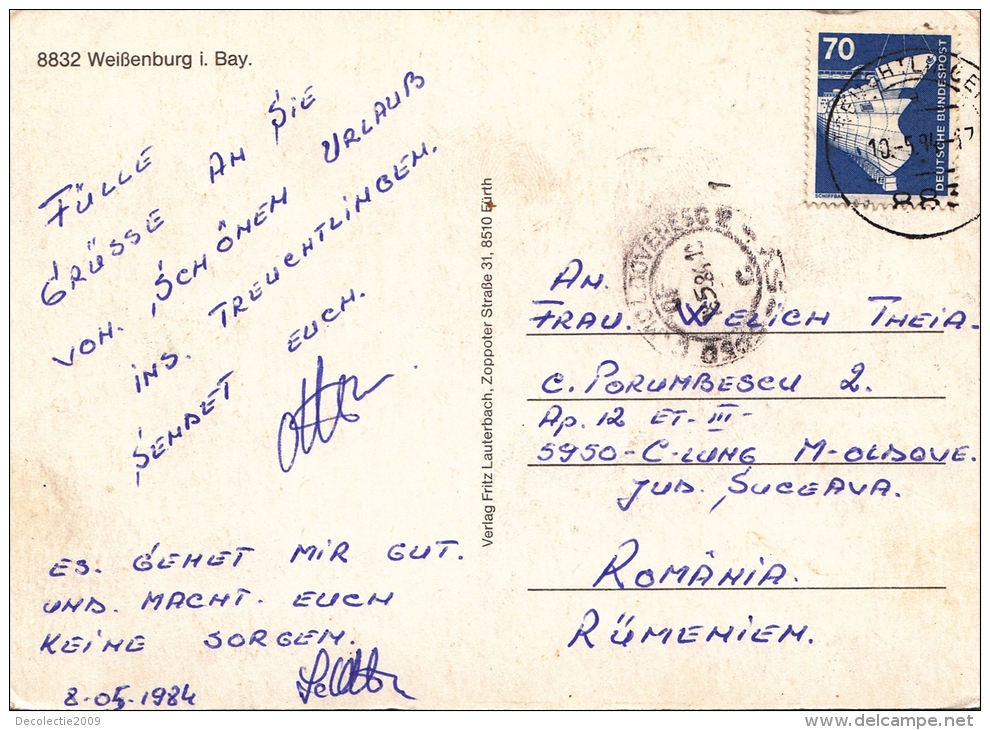 8832 Weißenburg i. Bay.
FÜLLE AN SIE
GRÜSSE
VON. SCHÖNEN URLAUB
INS. TREUCHTLINGEN.
SENDET EUCH.
Otto
ES. GEHET MIR GUT.
UND. MACHT. EUCH
KEINE SORGEN.
8-05-1984
Verlag Fritz Lauterbach, Zoppoter Straße 31, 8510 Fürth
70
DEUTSCHE BUNDESPOST
10.-5.84-17
88
1
AN.
FRAU. WELICH THEIA.
C. PORUMBESCU 2.
Ap. 12 ET-III-
5950-C-LUNG M-OLDOVE.
JUD. SUCEAVA.
ROMÂNIA.
RÜMENIEN.
Decolectie2009
www.delcampe.net